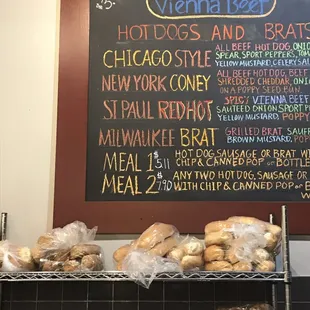 5.
Vienna Beef
HOT DOGS AND BRATS
CHICAGO STYLE
ALL BEEF HOT DOG, ONIO
SPEAR, SPORT PEPPERS, TOM
YELLOW MUSTARD, CELERY SAL
NEW YORK CONEY
ALL BEEF HOT DOG, BEEF
SHREDDED CHEDDAR, ONI
ON A POPPY SEED BUN.
ST PAUL RED HOT
VIENNA BEEF
SAUTEED ONION SPORT P
YELLOW MUSTARD, POPPY
MILWAUKEE BRAT
GRILLED BRAT, SAUE
BROWN MUSTARD, POP
MEAL 1 $ 5.11 HOT DOG, SAUSAGE OR BRAT W
CHIP & CANNED POP OR BOTTLE
MEAL 2 $ 7.90 ANY TWO HOT DOG, SAUSAGE OR
WITH CHIP & CANNED POP OR BOT